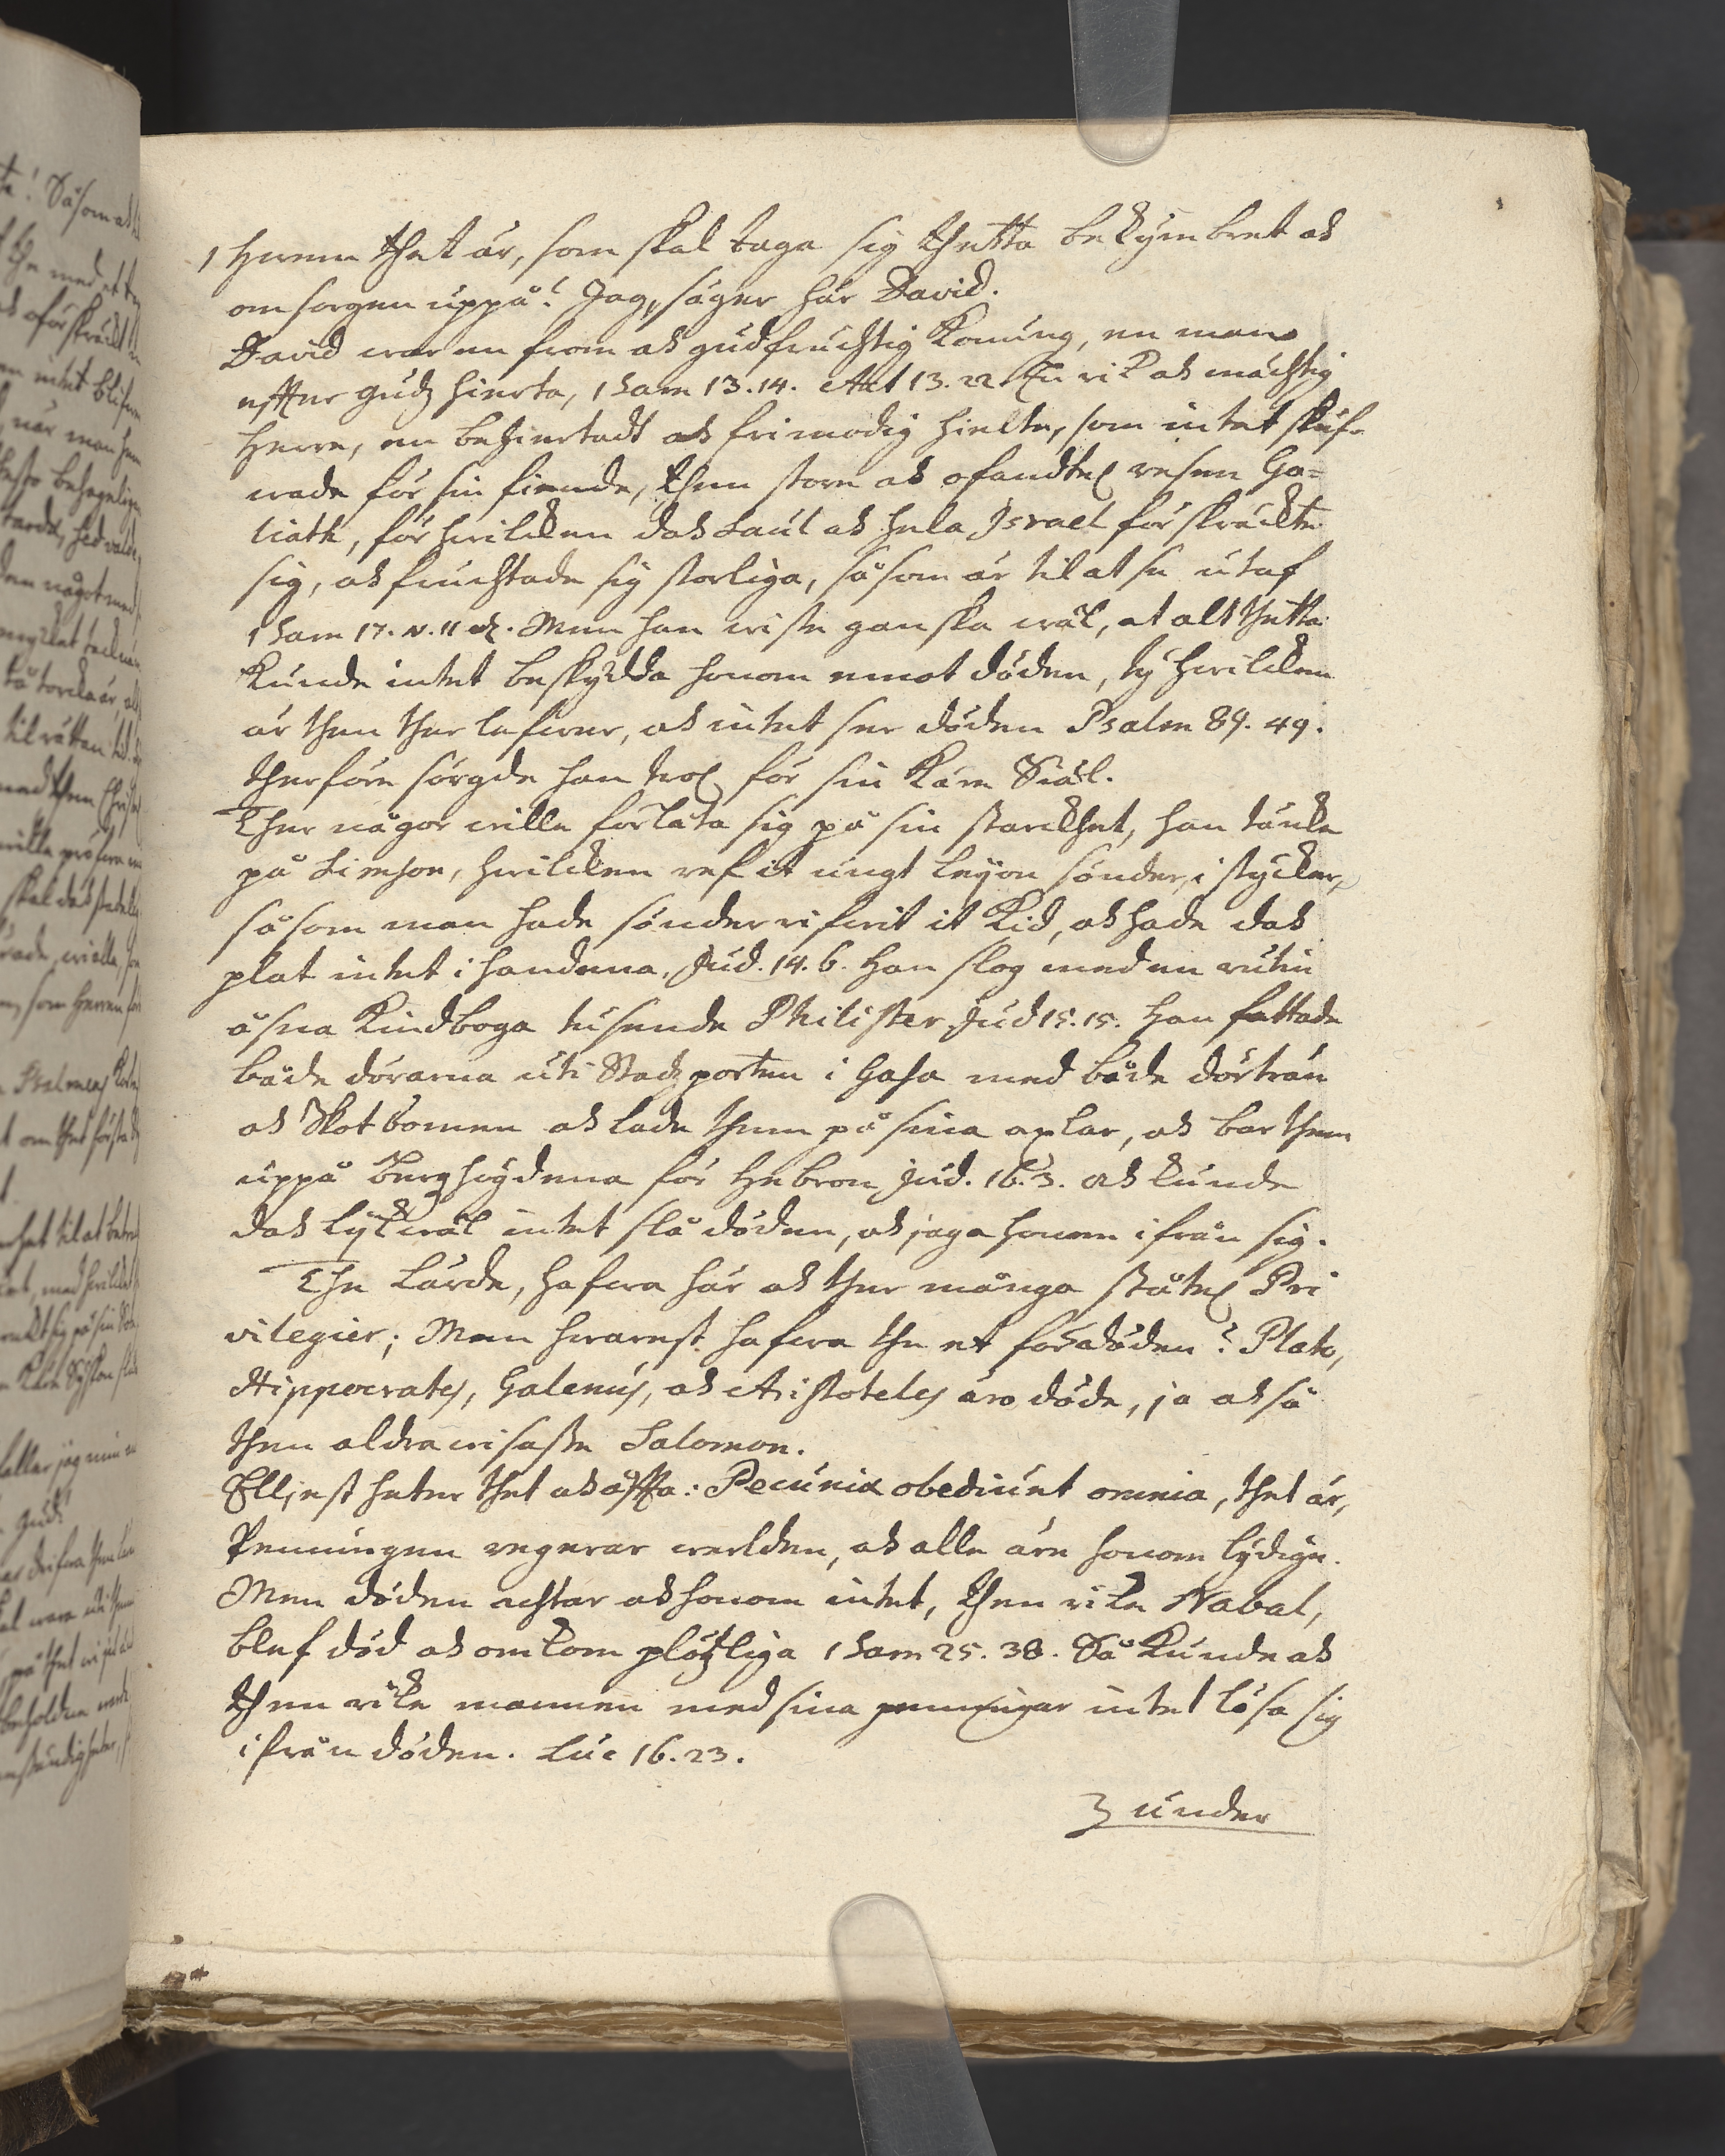 1 Hwem thet är, som skal taga sig thetta bekymbret ok
omsorgen uppå? Jag, säger här David.
David war en from ok gudfruchtig Konung, en man
effter gudz hierta, 1 Sam 13.14. Act 13.22. En rik ok mächtig
Herre, en behiertadt ok frimodig hielte, som intet skuf-
wade för sin fiende, then store ok ofandtel resen Go-
liath, för hwilcken dok Saul ok hela Israel förskräckte
sig, ok fruchtade sig storliga, såsom är til at se utaf
1 Sam 17. v. 11 etc. Men han wiste ganska wäl, at alt thetta
kunde intet beskydda honom emot döden, ty hwilcken
är then ther lefwer, ok intet ser döden Psalm 89. 49.
therföre sörgde han wol för sin kära Siäl.
Ther någor wille förlåta sig på sin starckhet, han täncke
på Simson, hwilcken ref it ungt leyon sönder i stycker,
såsom man hade sönderrifwit it Kid, ok hade dok
plat intet i handena. Jud. 14. 6. Han slog med en rutin
åsna Kindboga tusende Philister Jud 15. 15. han fattade
både dörarna uti Stadzporten i Gasa med både dörträn
ok Skotbomen ok lade them på sina axlar, ok bar them
uppå Berghögdena för Hebron Jud. 16. 3. ok kunde
dok lyckwäl intet slå döden, ok jaga honom ifrån sig.
The Lärde, hafwa här ok ther många ståtel Pri
vilegier; Men hwarest hafwa the et för döden? Plato,
Hippocrates, Galenus, ok Aristoteles äro döde, ja okså
then aldrawisaste Salomon.
Elljest heter thet ok offta: Pecuniæ obediunt omnia, thet är,
Penningen regerar werlden, ok alle äre honom lydige.
Men döden achtar ok honom intet, then rike Nabal,
blef död ok omkom plötzliga 1 Sam 25. 38. Så kunde ok
then rike mannen med sina penningar intet lösa sig
ifrån döden. Luc 16. 23.
3 under